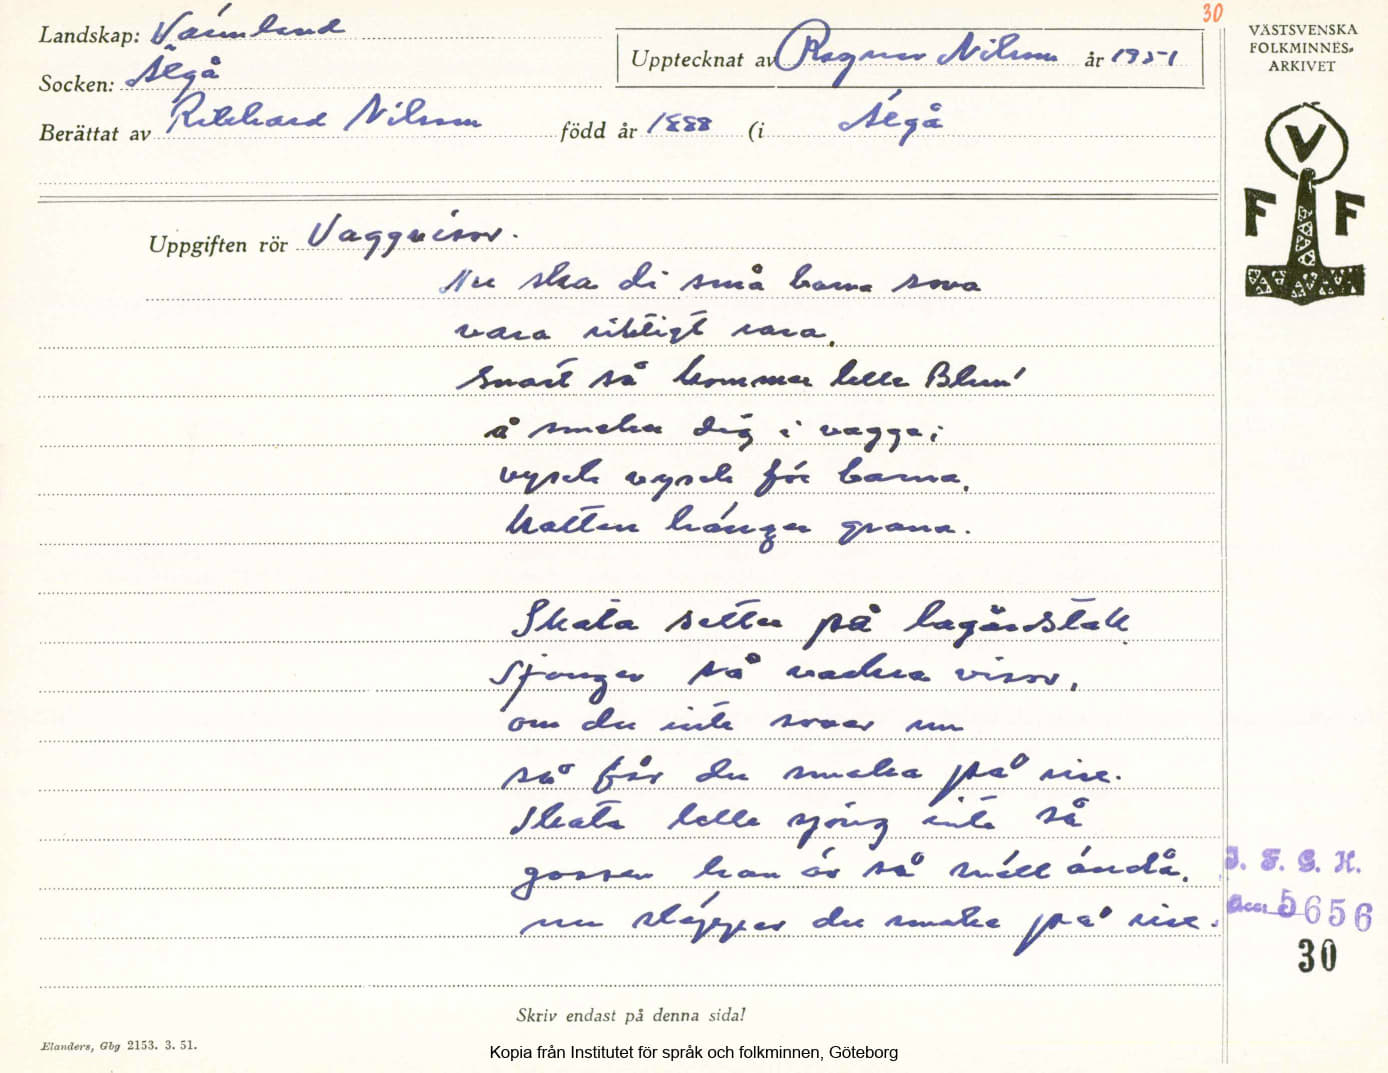 30
Landskap: Värmland
Socken: Älgå
Upptecknat av Ragnar Nilsson år 1951
Berättat av Rikhard Nilsson född år 1888 (i Älgå
VÄSTSVENSKA
FOLKMINNES-
ARKIVET
V
F F
Uppgiften rör Vaggvisor.
Nu ska di små barna sova
vara riktigt rara,
Snart så kommer lelle Blun'
å smeker dig i vagga;
vysch vysch för barna,
katten hänger grana.
Skata setter på lagårdstak
Sjonger så vackra visor,
om du inte sover nu
så får du smaka på rise.
Skata lelle sjöng inte så
gossen han är så snäll ändå,
nu slepper du smake på rise.
I. F. G. H.
Acc 5656
30
Skriv endast på denna sida!
Elanders, Gbg 2153. 3. 51.
Kopia från Institutet för språk och folkminnen, Göteborg